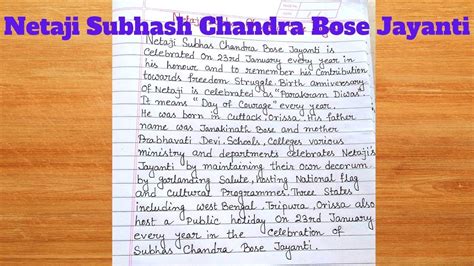 Netaji Subhash Chandra Bose Jayanti
Netaji Subhas Chandra Bose Jayanti is
Celebrated On 23rd January every year in
his honour and to remember his Contribution
towards freedom Struggle. Birth anniversary
Of Netaji is celebrated as "Parakram Diwas".
It means "Day of Courage" every year.
He was born in Cuttack, Orissa. His father
name was Janakinath Bose and mother
Prabhavati Devi. Schools, Colleges various
ministry and departments celebrates Netaji's
Jayanti by maintaining their own decorum
by garlanding Salute, hosting National flag
and Cultural Programmes. Three States
including West Bengal, Tripura, Orissa also
host a Public holiday On 23rd January
every year in the Celebration of
Subhas Chandra Bose Jayanti.